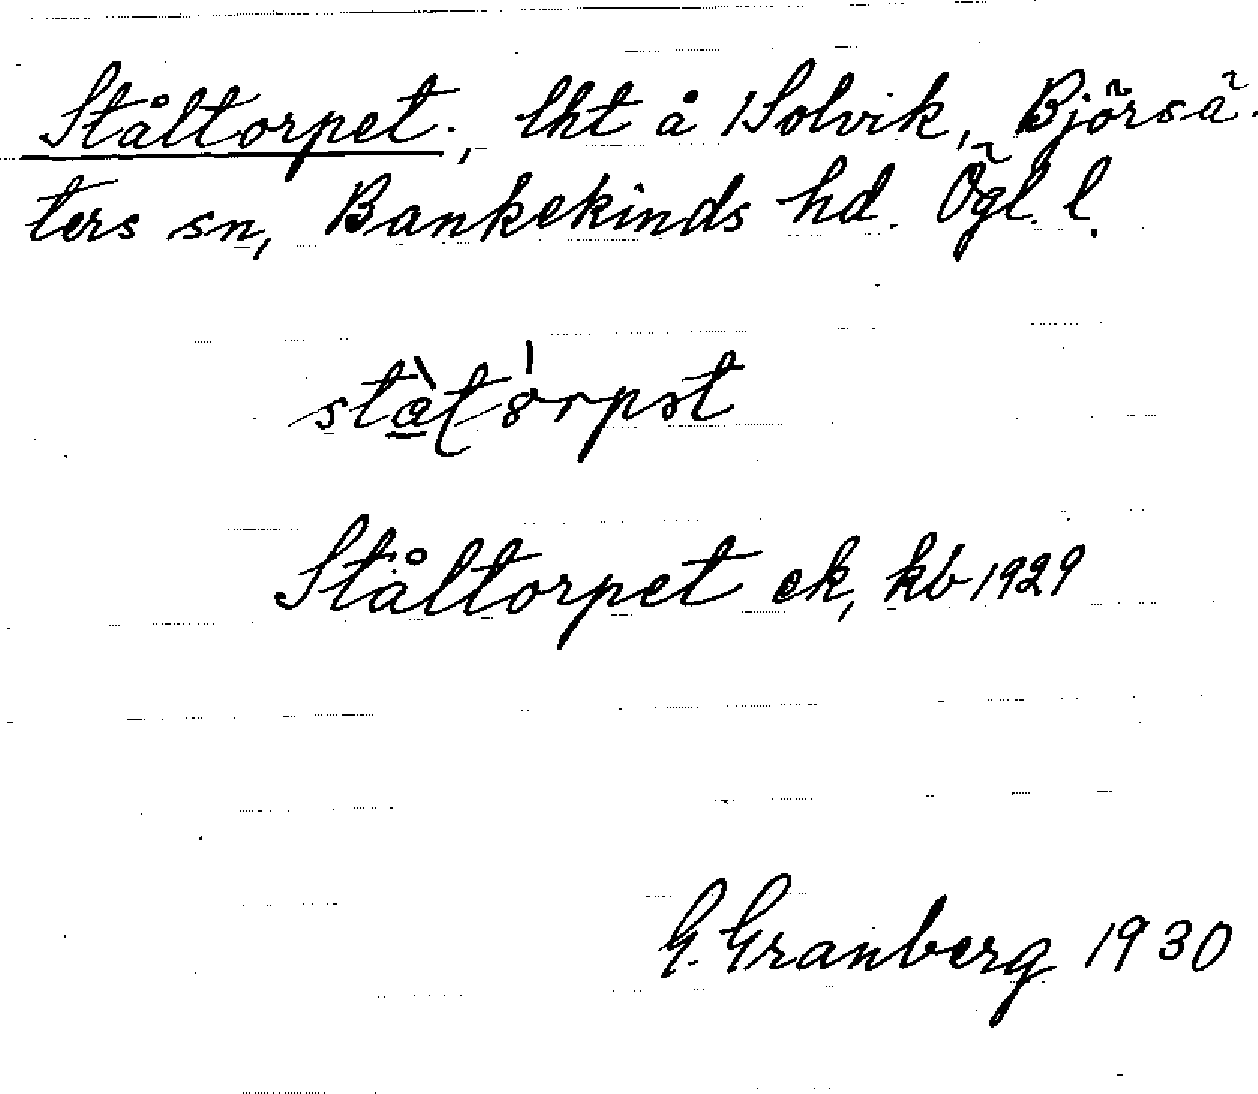 Ståltorpet, lht å Solvik, Björsä-
ters sn, Bankekinds hd. Ögl. l.
Ståltorpet ek, kb 1929
G. Granberg 1930